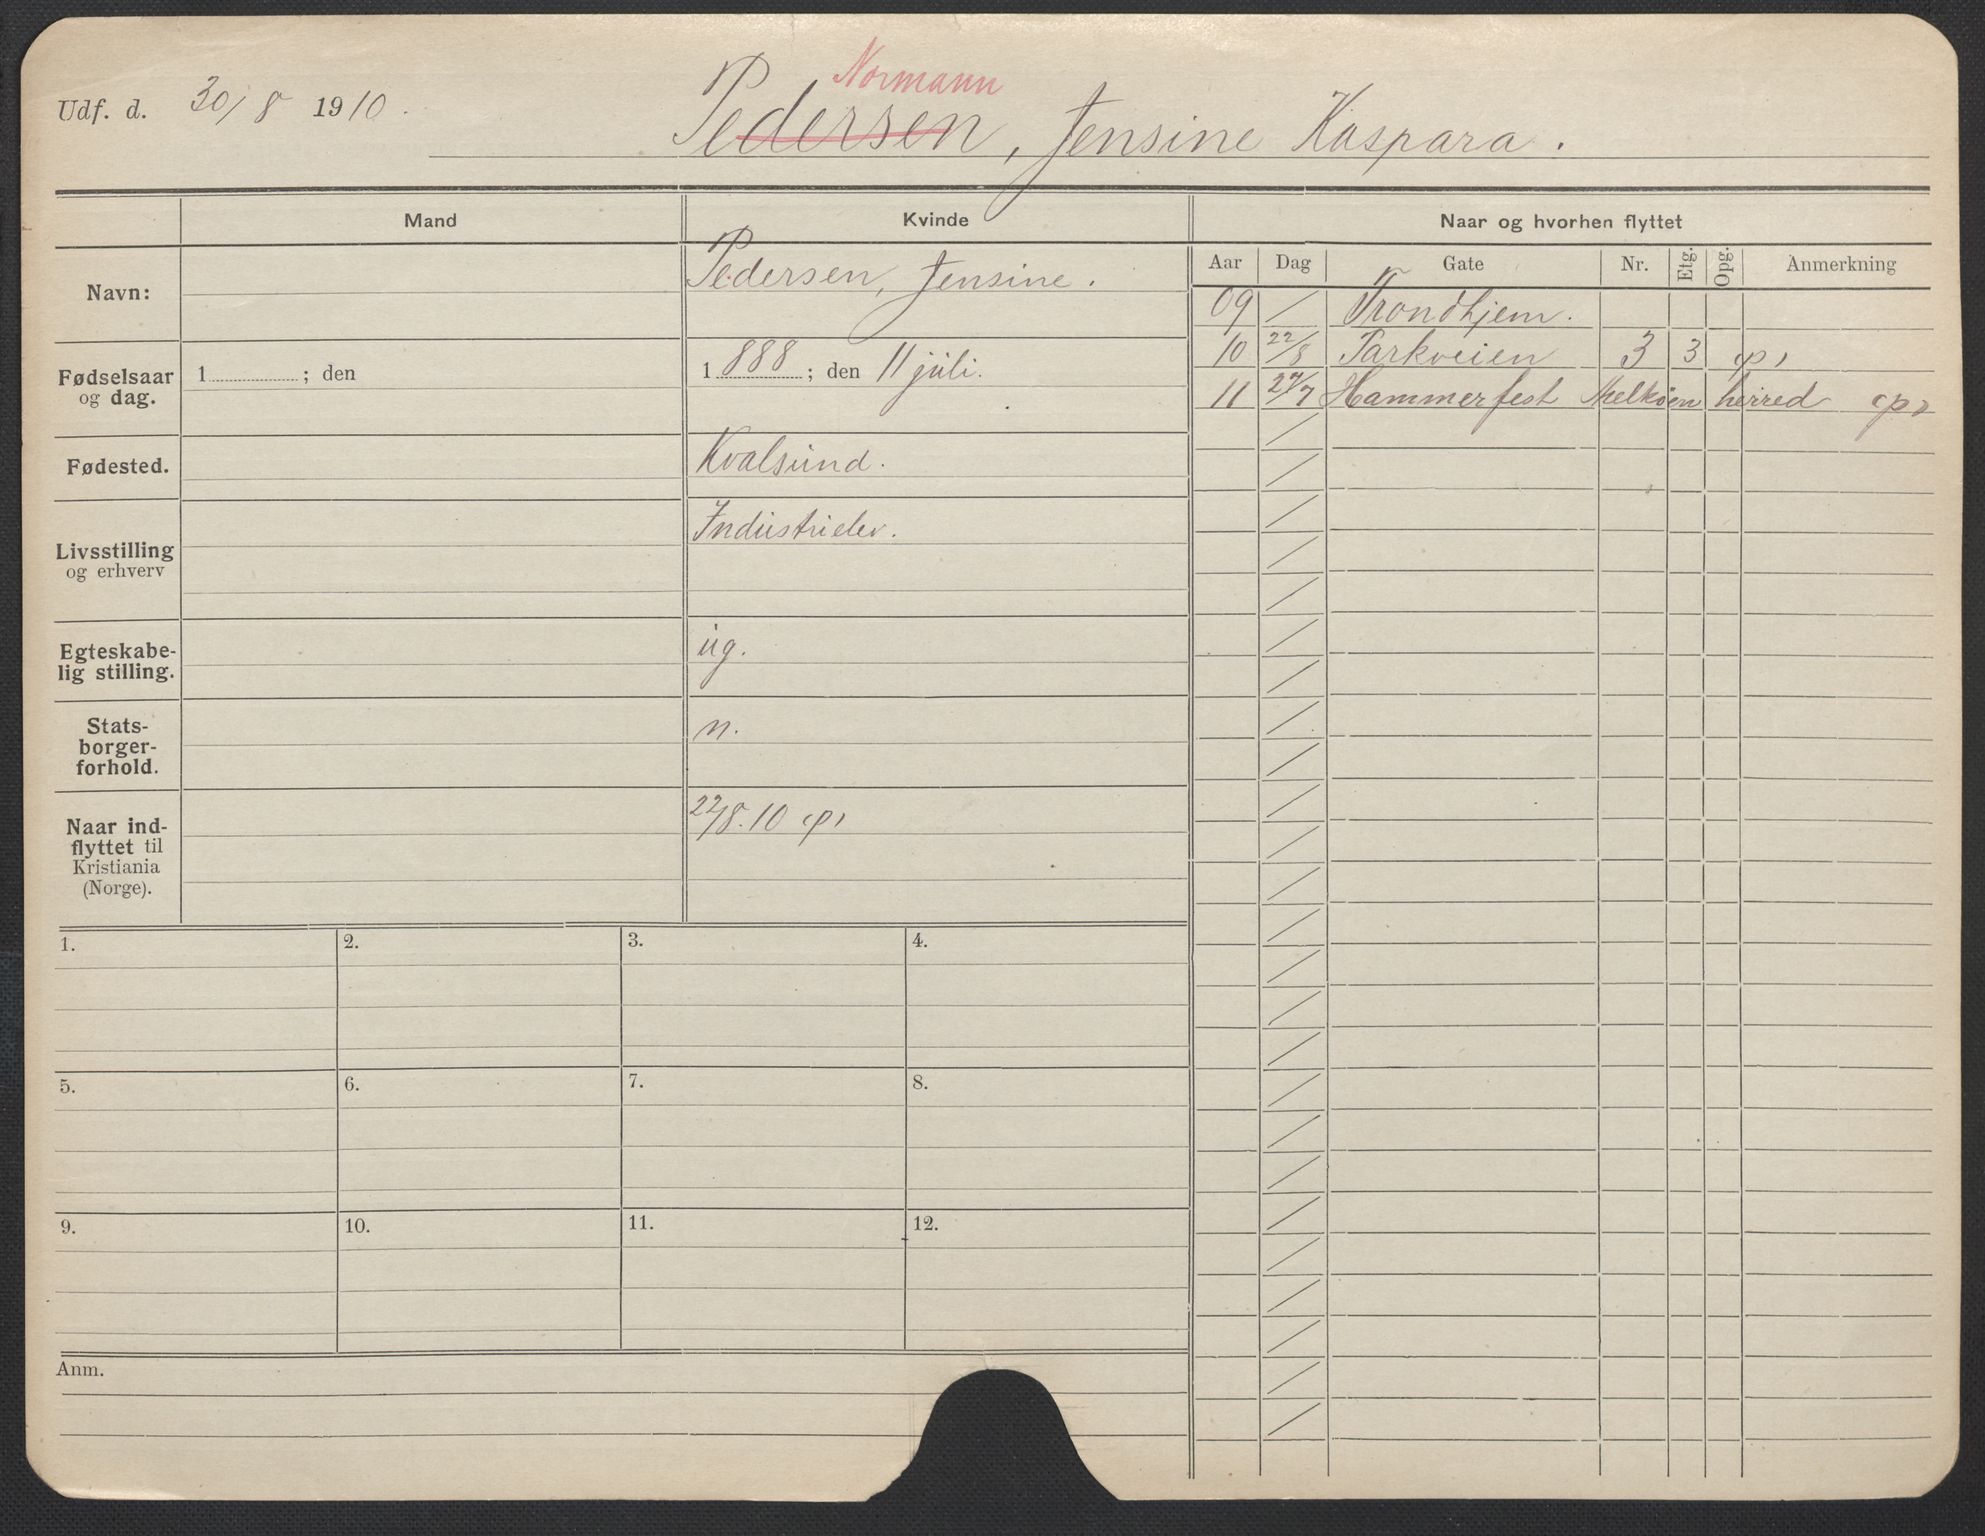 Normann
Udf. d. 30/8 1910. Pedersen, Jensine Kaspara.
Mand Kvinde Naar og hvorhen flyttet
Aar Dag Gate Nr. Etg. Opg. Anmerkning
Navn: Pedersen, Jensine.
09 / Trondhjem.
10 22/8 Parkveien 3 3 (p)
11 27/7 Hammerfest Melkøen herred (p)
Fødselsaar og dag. 1 ; den 1888 ; den 11 juli.
Fødested. Kvalsund.
Livsstilling og erhverv Industrielev.
Egteskabe-
lig stilling. ug.
Stats-
borger-
forhold. n.
Naar ind-
flyttet til
Kristiania
(Norge). 22/8.10 (p)
1. 2. 3. 4.
5. 6. 7. 8.
9. 10. 11. 12.
Anm.